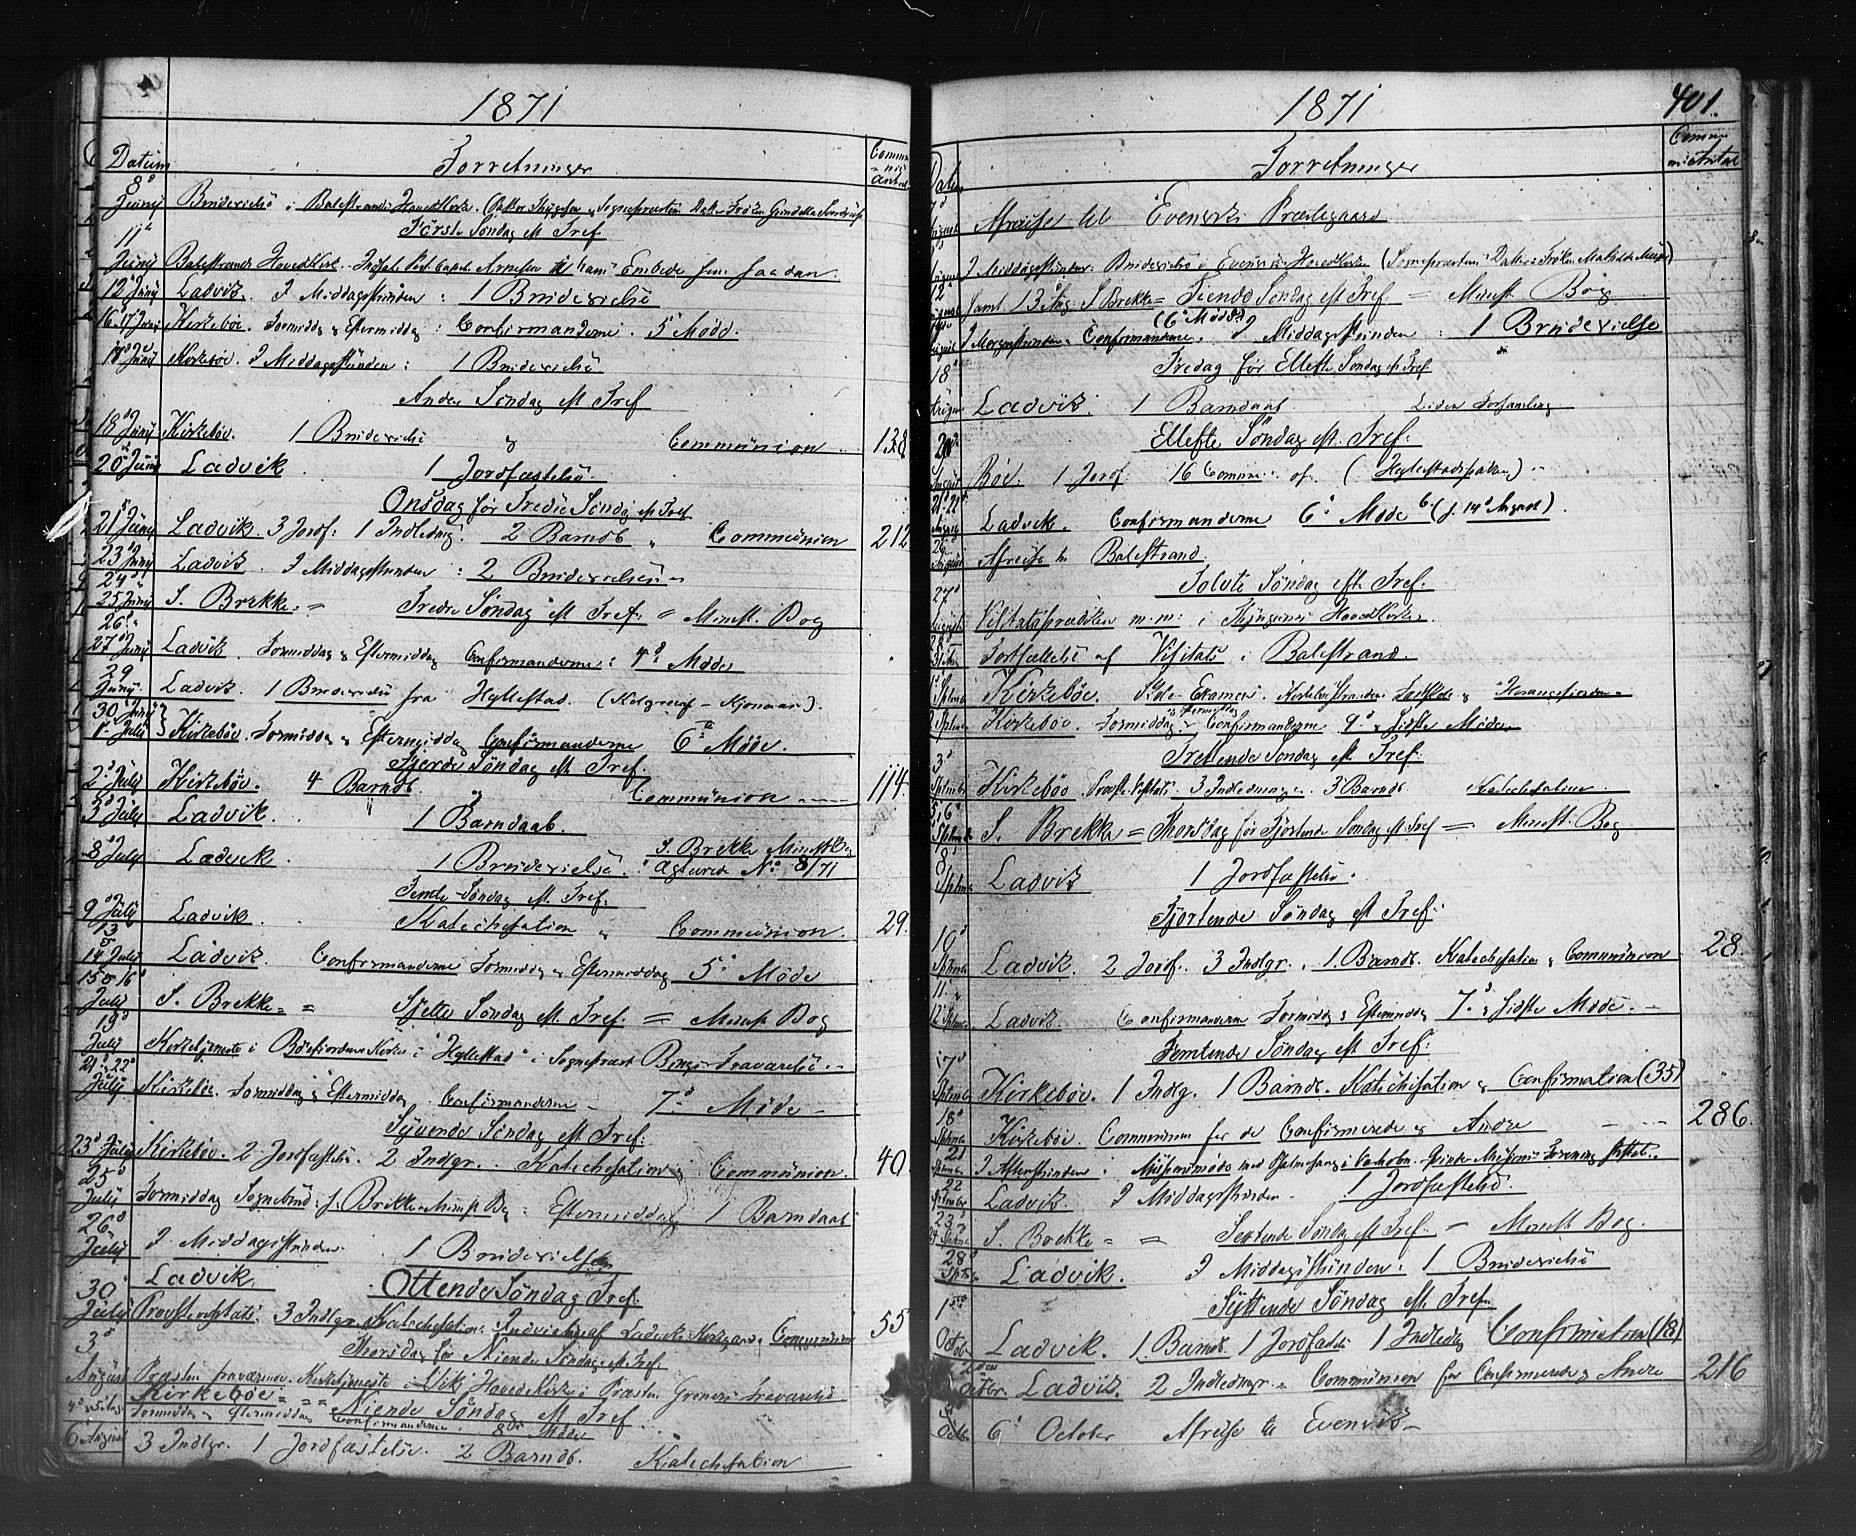 1871
Datum Forretninger Commu=nic antal
8de Juny Brudevielse i Balestrands HovedKirke.
Første Søndag eft Tref
11te Juny Balestrands HovedKirk. Indsat. Pers. Capel. Arnesen til hans Embede som saadan.
12 Juny Ladvik. I Middagsstunden: 1 Brudevielse
16. 17 Juny Kirkebøe. Formiddag og Eftermiddag: Confirmanderne. 5te Møde.
17de Juny Kirkebøe. I Middagsstunden: 1 Brudevielse
Anden Søndag eft Tref
18 Juny Kirkebøe. 1 Brudevielse og Communion 138
20de Juny Ladvik 1 Jordfæstelse.
Onsdag før Tredie Søndag eft Tref
21de Juny Ladvik. 3 Jordf: 1 Indledning. 2 Barnd. og Communion 212
23de Juny Ladvik. I Middagsstunden: 2 Brudevielser
24de 25 Juny S. Brekke. = Tredie Søndag eft Tref: = Minist. Bog
26de 27 Juny Ladvik. Formiddag og Eftermiddag Confirmanderne: 4de Møde
29 Juny Ladvik. 1 Brudevielse fra Hyllestad.
30 Juny 1. July Kirkebøe. Formiddag og Eftermiddag Confirmanderne 6te Møde.
Fjerde Søndag eft Tref.
2de July Kirkebøe. 4 Barndb. og Communion 114.
5te July Ladvik. 1 Barndaab.
8de July Ladvik. 1 Brudevielse. S. Brekke Minist Bog No 8/71
Femte Søndag eft Tref.
9de July Ladvik. Katechesation og Communion. 29.
13 14 July Ladvik. Confirmanderne Formiddag og Eftermiddag 5te Møde
15 og 16de July S. Brekke = Sjette Søndag eft Tref. = Minist Bog
19de July Kirketjeneste i Bøefjordens Kirke i "Hyllestad" i Sognepræst Fraværelse
21 22de July Kirkebøe. Formiddag og Eftermiddag Confirmanderne 7de Møde
Syvende Søndag eft Tref:
23de July Kirkebøe. 2 Jordfæstels. 2 Indlgr. Katechesation og Communion. 40.
25de July Formiddag Sognebud: S. Brekke Minist Bog: Eftermiddag 1 Barndaab
26de July I Middagsstunden 1 Brudevielse
Ladvik. Ottende Søndag Tref.
30 July Provstevisitats: 3 Indlgr. Katechesation. Indvielse af Ladviks Kirkegaard Communion 55
Thorsdag før Niende Søndag eft Tref.
3de August Præsten fraværende. Kirketjeneste i Vik HovedKirke i Præsten Fraværelse
Kirkebøe = = Niende Søndag eft Tref
4de og 5 Aug. Formiddag og Eftermiddag Confirmanderne. 8de Møde
6 August 3 Indlgr. 1 Jordfæstelse. 2 Barndb. Katechesation
1871 401.
Datum Forretninger Commu ni: Antal
Afreise til Evenviks Præstegaard
I Middagsstunden Brudevielse i Evenviks HovedKirke
12te samt 13 Aug. S. Brekke = Tiende Søndag eft Tref = Minist Bog
I Morgenstunden: Confirmanderne. (6te Møde) I Middagsstunden: 1 Brudevielse
Fredag før Ellefte Søndag eft Tref
18 August Ladvik. 1 Barndaab. Liden Forsamling
Ellefte Søndag eft. Tref.
20de August Bøe. 1 Jord. 16 Commun: of
21de 22de August Ladvik. Confirmanderne 6te Møde (s. 14de August).
26 August Afreise til Balestrand.
Tolvte Søndag eft Tref.
27de August Visitatsprædiken m.m: i Tjugums HovedKirke.
28 31 Aug Fortsættelse af Visitats i Balestrand.
1ste Sptmb Kirkebøe. Skole-Examen.
2 Sptmb. Kirkebøe. Formiddag og Eftermiddag Confirmanderne 9de og Sidste Møde.
Trettende Søndag eft Tref.
3de Sptmbr Kirkebøe Provste-Visitats. 3 Indledninger. 3 Barndb Katechesation
5, 6 Sptmb. S. Brekke = Thorsdag før Fjortende Søndag eft Tref = Minist. Bog
8 Sptmbr Ladvik 1 Jordfæstelse.
Fjortende Søndag eft Tref.
10de Sptmbr Ladvik. 2 Jordf. 3 Indlgr. 1. Barndb. Katechesation og Communion 28.
11 12 Sptmbr Ladvik. Confirmanderne Formiddag og Eftermiddag 7de og Sidste Møde.
Femtende Søndag eft Tref.
17de Sptmbr Kirkebøe. 1 Indlg. 1 Barndb. Katechesation og Confirmation (35)
18de Sptmbr Kirkebøe. Communion for de Confirmerede og Andre 286.
21 Sptmbr I Aftenstunden: Missionsmøde med Psalmesang
22 Sptmber Ladvik. I Middagsstunden 1 Jordfæstelse.
23de 24 Sptmbr S. Brekke = = Sextende Søndag eft Tref. = Minist Bog.
28de Sptmbr Ladvik. I Middagsstunden: 1 Brudevielse
Syttende Søndag eft Tref.
1ste October Ladvik. 1. Barndb. 1 Jordfæstelse 1 Indledg Confirmation (18)
2den Octbr. Ladvik. 2 Indledngr. Communion for Confirmerede og Andre 216
Octbr. 6te October Afreise til Evenvik